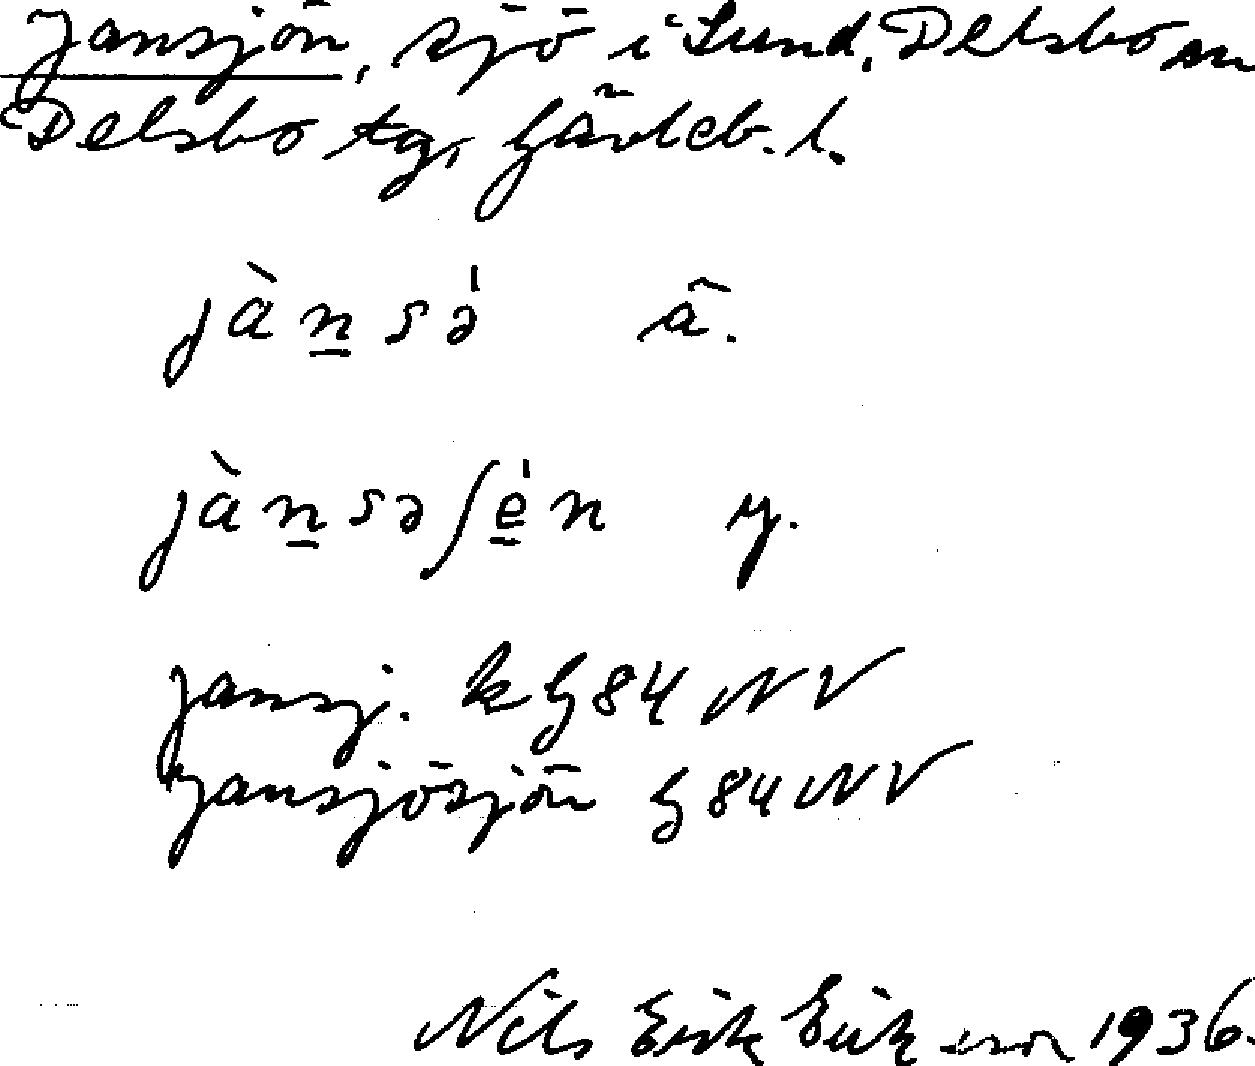 Jansjön, sjö i Lund, Delsbo sn
Delsbo tg, Gävleb. l.
jàn̲sə̍ â.
jàn̲səʃe̲̍n y.
Jansj. k G 84 NV
Jansjösjön G 84 NV
Nils Erik Eriksson 1936.